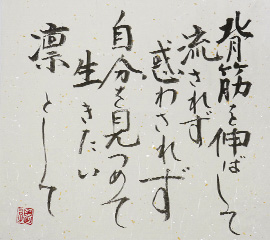 背筋を伸ばして
流されず
惑わされず
自分を見つめて
生きたい
凛として